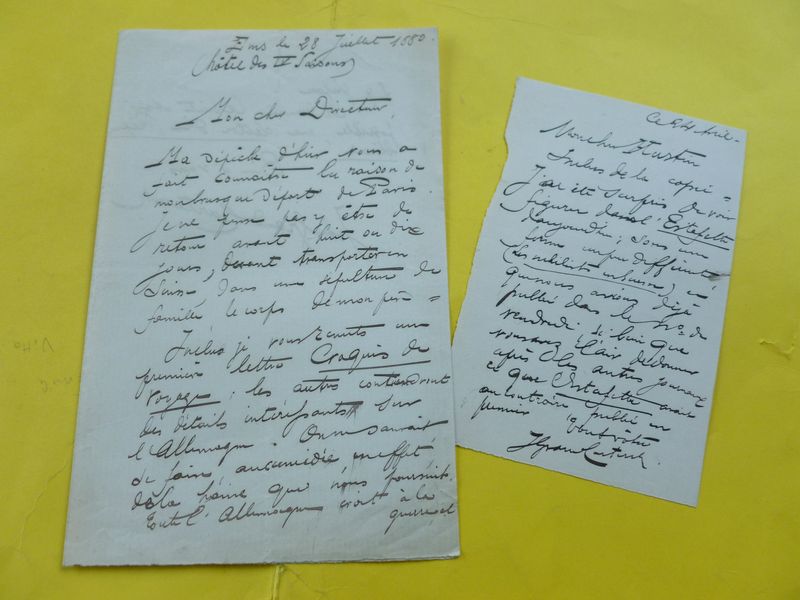 Ems le 28 Juillet 1880.
(hôtel des IV Saisons)
Mon cher Directeur,
Ma dépêche d'hier vous a
fait connaître la raison de
mon brusque départ de Paris.
je ne pense pas y être de
retour avant huit ou dix
jours, devant transporter en
Suisse dans une sépulture de
famille le corps de mon père
Inclus je vous envoie une
première lettre Croquis de
voyage; les autres contiendront
des détails intéressants sur
l'Allemagne. On ne saurait
se faire aucune idée en effet
de la haine que nous poursuit.
Toute l'Allemagne croit à la
guerre et
Ce 24 Avril
Mon cher
Inclus de la copie =
J'ai été surpris de voir
figurer dans l'Estafette
d'aujourd'hui, sous un
titre un peu différent
en
que nous avions déjà
publié dans le No. de
vendredi. Si bien que
vous avez l'air de donner
après les autres journaux
ce que l'Estafette avait
au contraire publié en
premier